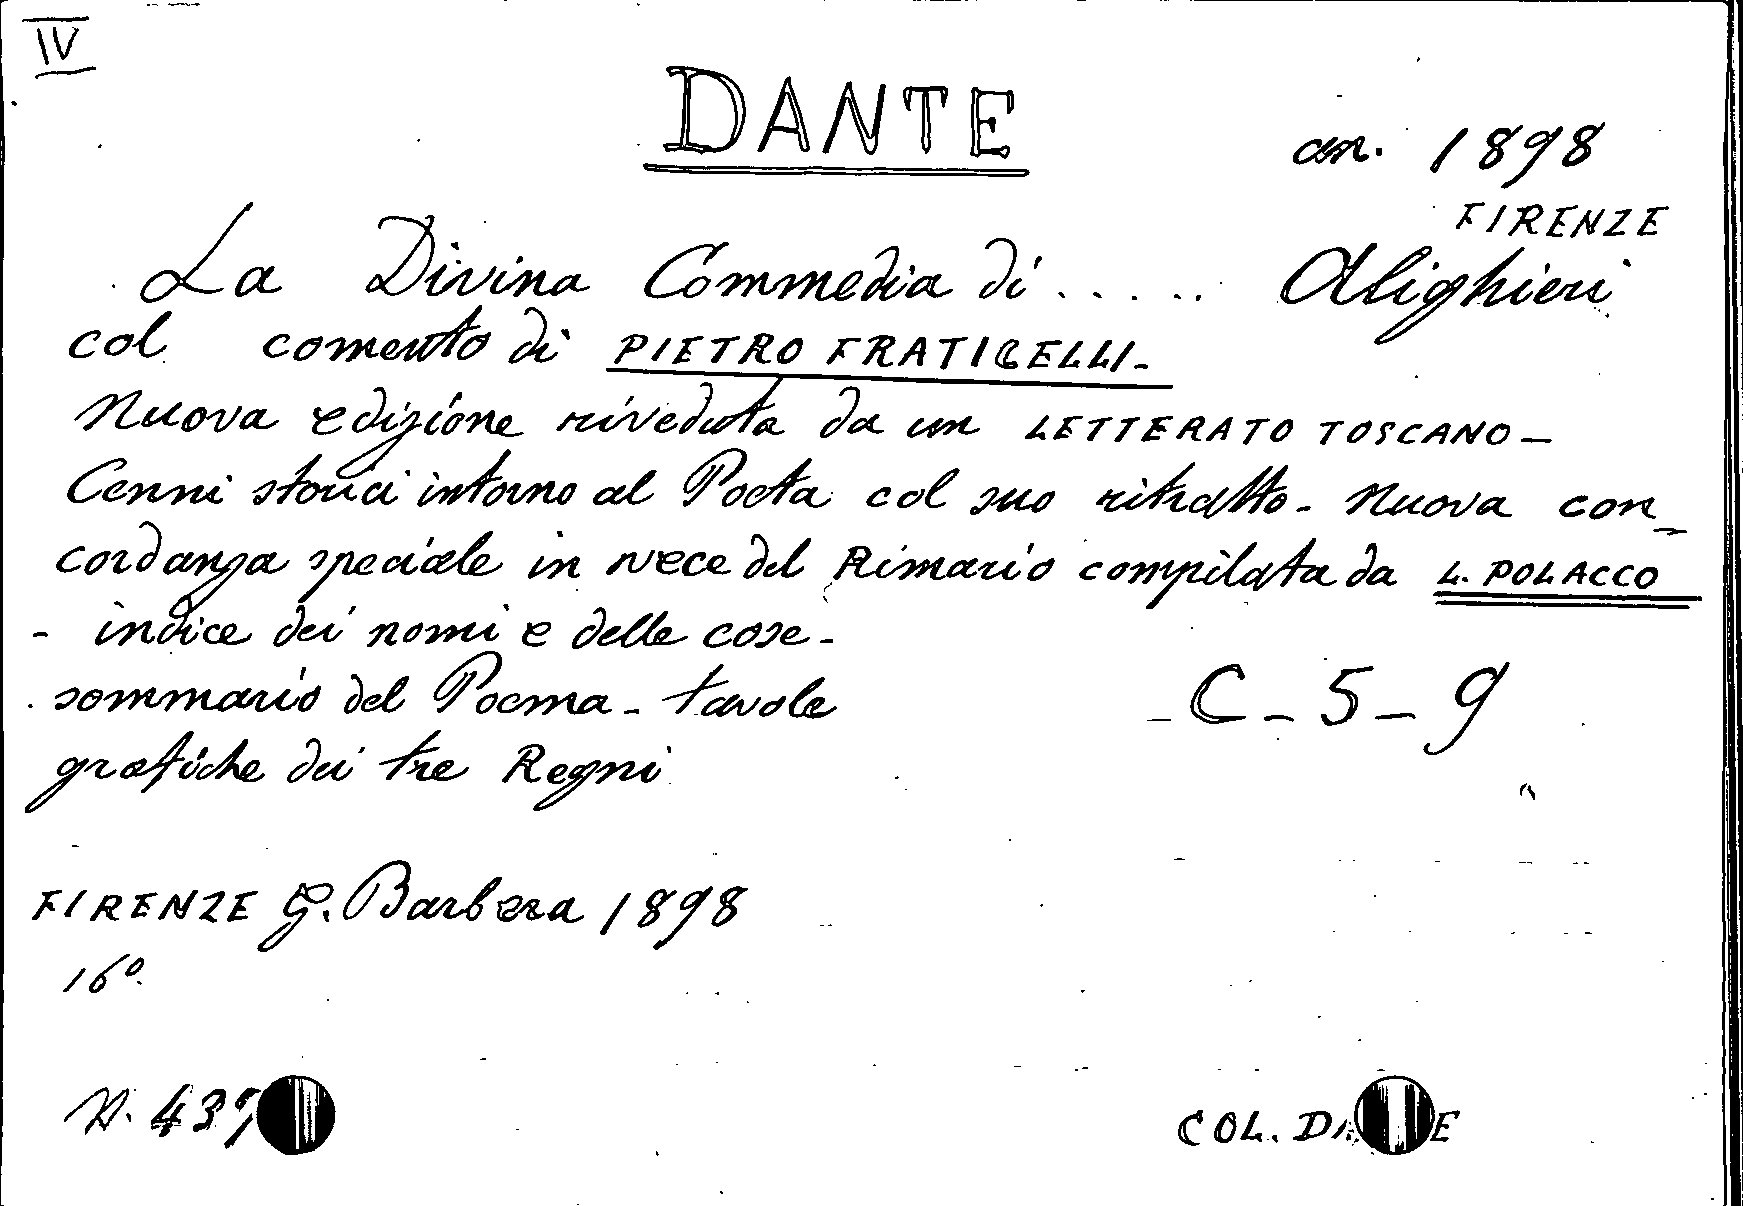 IV
DANTE
an. 1898
FIRENZE
La Divina Commedia di ..... Alighieri
col comento di PIETRO FRATICELLI.-
Nuova edizione riveduta da un LETTERATO TOSCANO -
Cenni storici intorno al Poeta col suo ritratto. Nuova con-
cordanza speciale in vece del Rimario compilata da L. POLACCO
- indice dei nomi e delle cose -
sommario del Poema - tavole
grafiche dei tre Regni
- C - 5 - 9
FIRENZE G. Barbera 1898
16°
N.
COL.